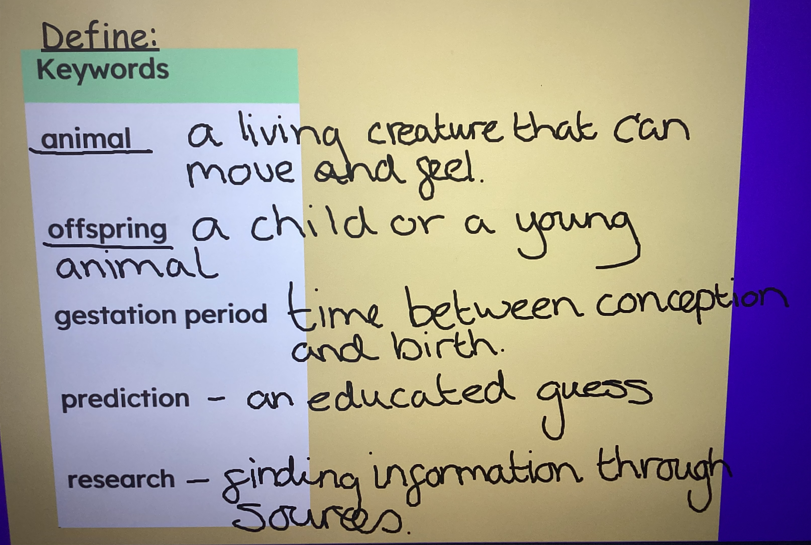 Define:
Keywords
animal a living creature that can
move and feel.
offspring a child or a young
animal
gestation period time between conception
and birth.
prediction - an educated guess
research - finding information through
sources.